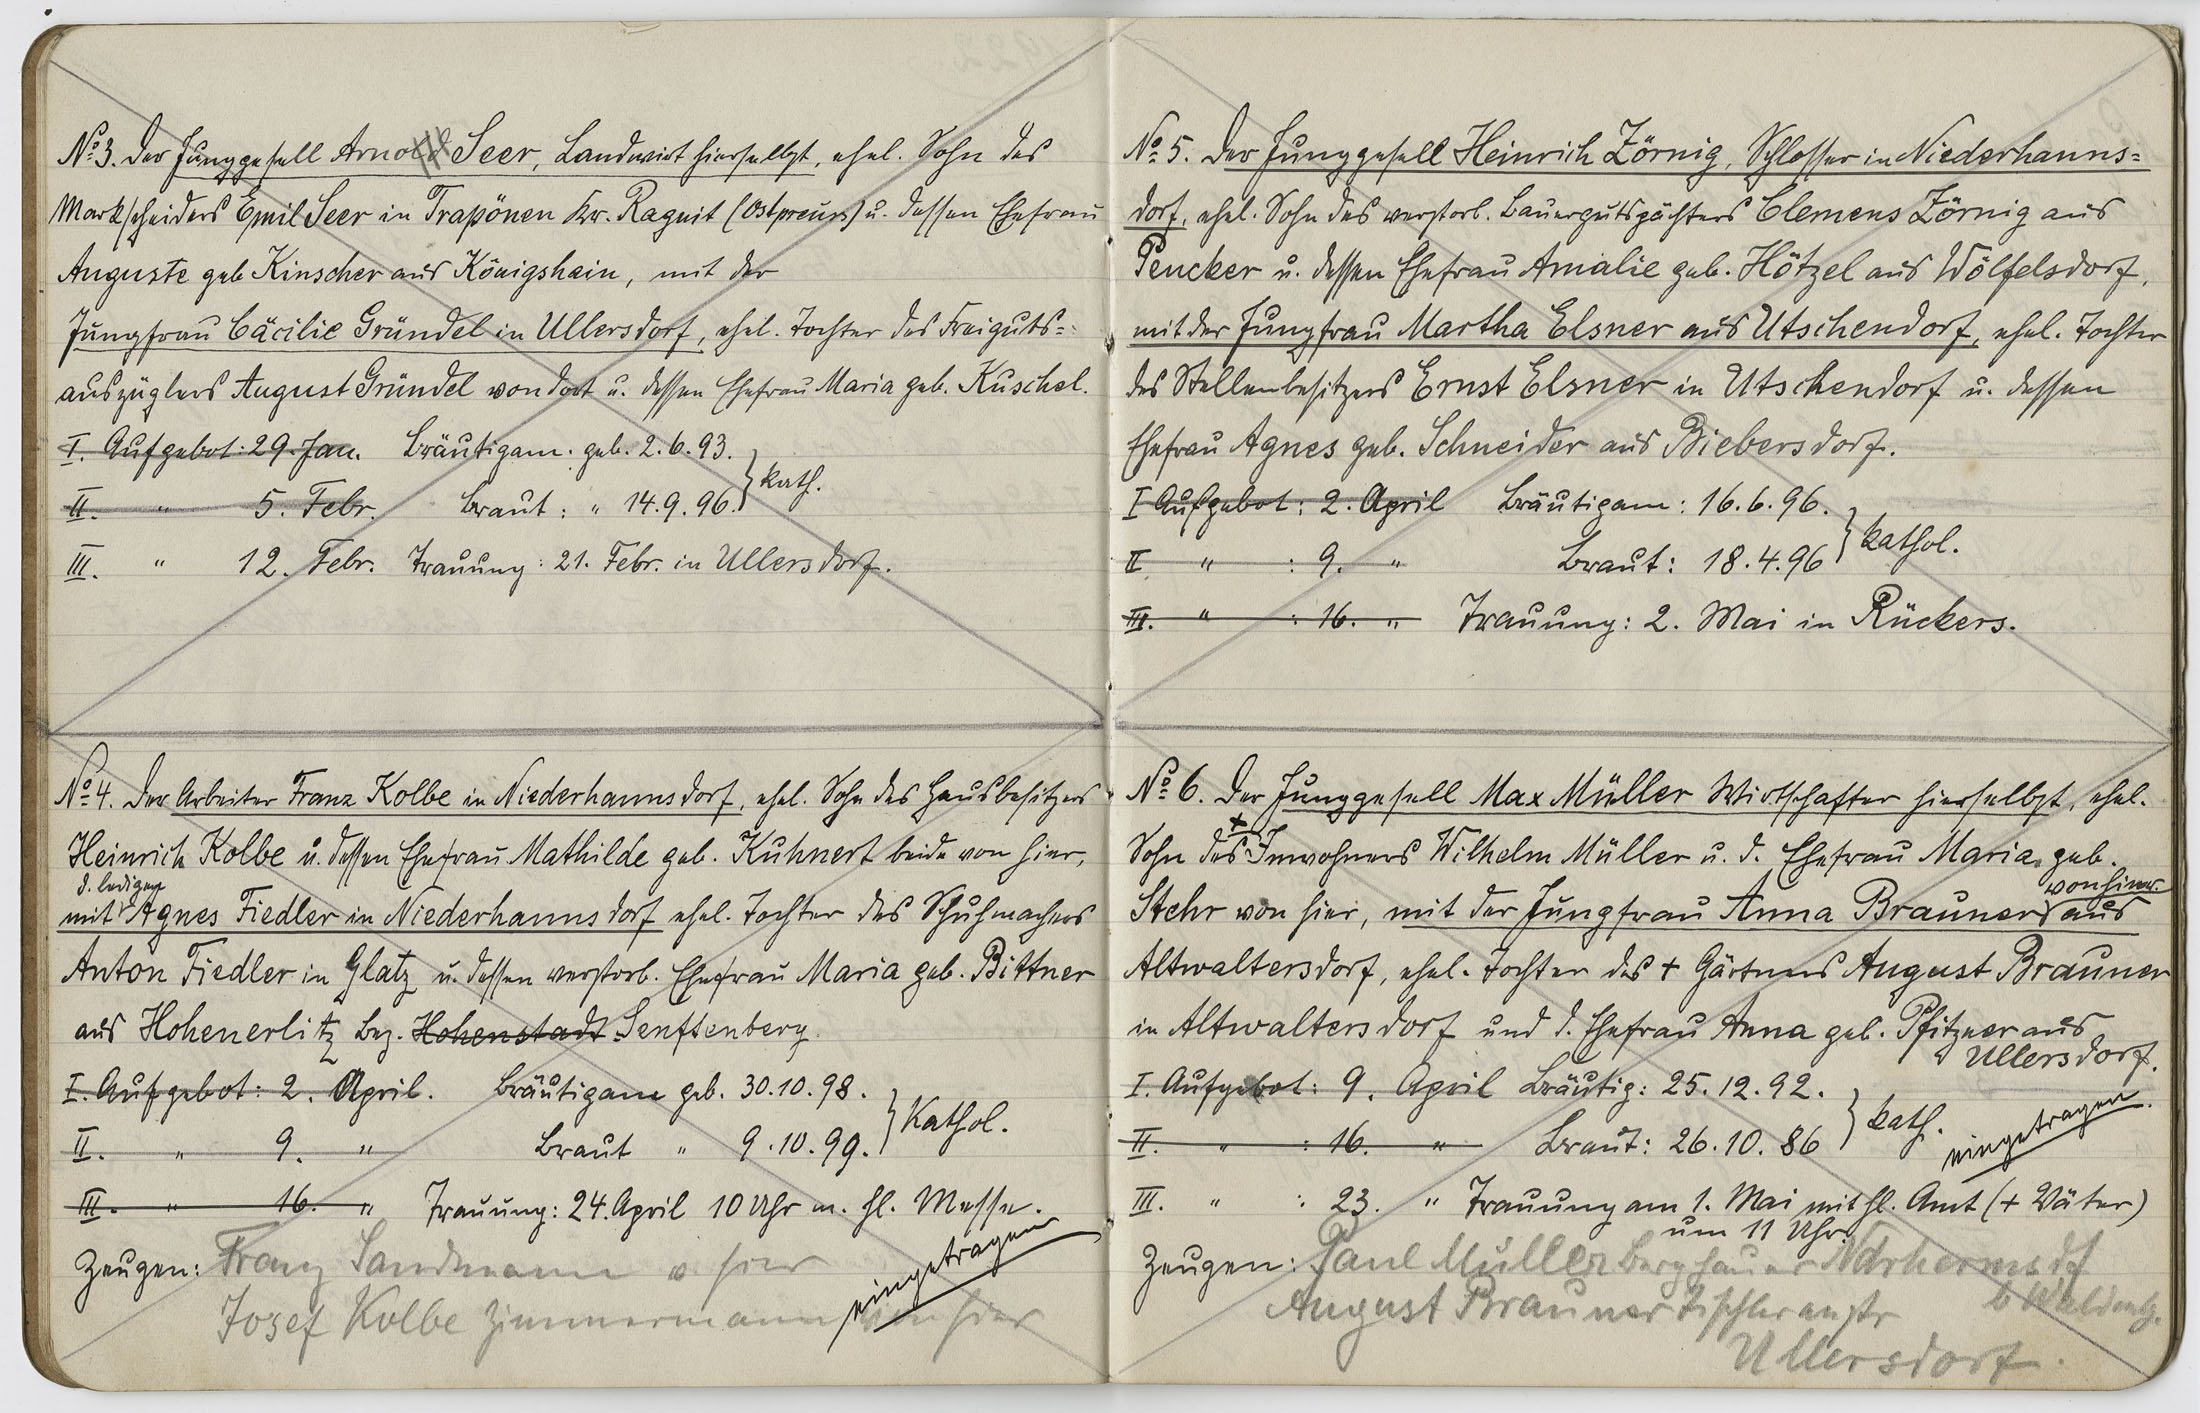 No 3. Der Junggesell Arnold Seer, Landwirt hierselbst, ehel. Sohn des
Markscheiders Emil Seer in Trapönen Kr. Ragnit (Ostpreuss) u. dessen Ehefrau
Auguste geb Kinscher aus Königshain, mit der
Jungfrau Cäcilie Gründel in Ullersdorf, ehel. Tochter des Freiguts=
auszüglers August Gründel von dort u. dessen Ehefrau Maria geb. Kuschel.
I. Aufgebot: 29. Jan. Bräutigam. geb. 2.6.93.
II. " 5. Febr. Braut: " 14.9.96. } kath.
III. " 12. Febr. Trauung: 21. Febr. in Ullersdorf.
No 4. Der Arbeiter Franz Kolbe in Niederhannsdorf, ehel. Sohn des Hausbesitzers
Heinrich Kolbe u. dessen Ehefrau Mathilde geb. Kuhnert beide von hier,
d. ledigen
mit Agnes Fiedler in Niederhannsdorf ehel. Tochter des Schuhmachers
Anton Fiedler in Glatz u. dessen verstorb. Ehefrau Maria geb. Bittner
aus Hohenerlitz Bez. Hohenstadt Senftenberg.
I. Aufgebot: 2. April. Bräutigam geb. 30.10.98.
II. " 9. " Braut " 9.10.99. } Kathol.
III. " 16. " Trauung: 24. April 10 Uhr m. hl. Messe.
Zeugen: Franz Sandmann v. hier
eingetragen
Josef Kolbe Zimmermann von hier
No 5. Der Junggesell Heinrich Zörnig, Schlosser in Niederhanns=
dorf, ehel. Sohn des verstorb. Bauergutspächters Clemens Zörnig aus
Pencker u. dessen Ehefrau Amalie geb. Hötzel aus Wölfelsdorf,
mit der Jungfrau Martha Elsner aus Utschendorf, ehel. Tochter
des Stellenbesitzers Ernst Elsner in Utschendorf u. dessen
Ehefrau Agnes geb. Schneider aus Biebersdorf.
I Aufgebot: 2. April Bräutigam: 16.6.96.
II " : 9. " Braut: 18.4.96 } kathol.
III. " : 16. " Trauung: 2. Mai in Rückers.
No 6. Der Junggesell Max Müller Wirtschafter hierselbst, ehel.
Sohn des + Inwohners Wilhelm Müller u. d. Ehefrau Maria geb.
Stehr von hier, mit der Jungfrau Anna Brauner von hier aus
Altwaltersdorf, ehel. Tochter des + Gärtners August Brauner
in Altwaltersdorf und d. Ehefrau Anna geb. Pfitzner aus
Ullersdorf.
I. Aufgebot: 9. April Bräutig: 25.12.92.
II. " : 16. " Braut: 26.10.86 } kath.
eingetragen
III. " : 23. " Trauung am 1. Mai mit hl. Amt (+ Väter)
um 11 Uhr.
Zeugen: Paul Müller Berghauer Ndrhermsdf
b Waldenbg.
August Brauner Tischlermstr
Ullersdorf.